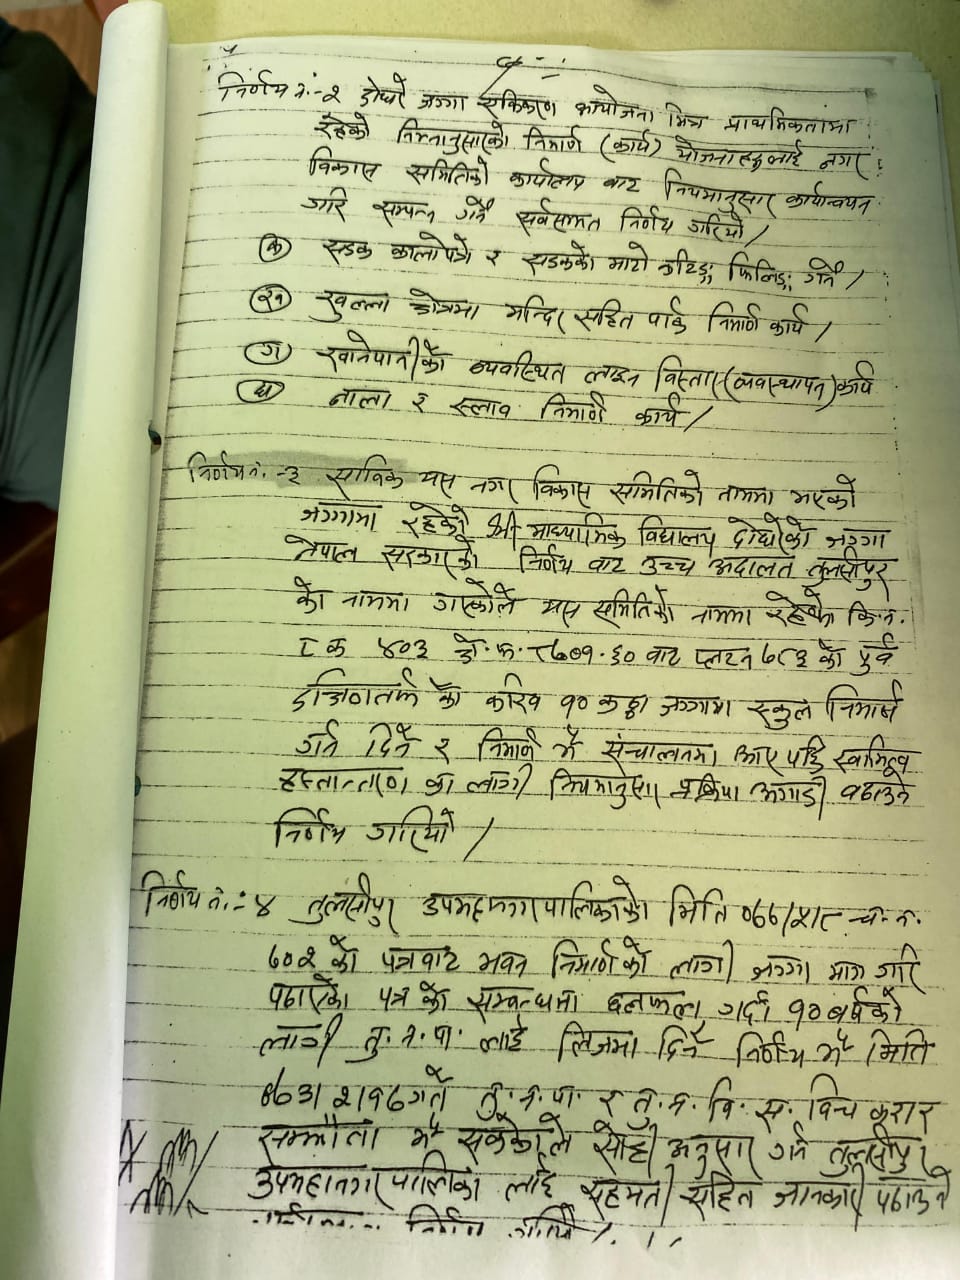 निर्णय नं:-२ दोघरे जग्गा एकिकरण कार्ययोजना भित्र प्राथमिकतामा
रहेको निम्नानुसारको निर्माण (कार्य) योजनाहरुलाई नगर
विकास समितिको कार्यालय बाट नियमानुसार कार्यान्वयन
गरि सम्पन्न गर्ने सर्वसम्मत निर्णय गरियो /
(क) सडक कालोपत्रे र सडकको माटो कटिङ्ग फिलिङ्ग गर्ने /
(ख) खुल्ला क्षेत्रमा मन्दिर सहित पार्क निर्माण कार्य /
(ग) खानेपानीको व्यवस्थित लाइन विस्तार (व्यवस्थापन) कार्य
(घ) नाला र स्लाव निर्माण कार्य /
निर्णय नं. -३ साविक यस नगर विकास समितिको नाममा भएको
जग्गामा रहेको श्री माध्यामिक विद्यालय दोघरेको जग्गा
नेपाल सरकारको निर्णय बाट उच्च अदालत तुलसीपुर
को नाममा गएकोले यस समितिको नाममा रहेको कि.नं.
४०३ बाट प्लटन ७८३ को पुर्व
दक्षिणतर्फ को करिव १० कठ्ठा जग्गामा स्कुल निर्माण
गर्न दिने र निर्माण भै संचालनमा आए पछि स्वामित्व
हस्तान्तरण का लागी नियमानुसार प्रक्रिया अगाडी बढाउने
निर्णय गरियो /
निर्णय नं.:- ४ तुलसीपुर उपमहानगरपालिकाको मिति ०७७/५/८ च.नं.
७०२ को पत्रबाट भवन निर्माणको लागी जग्गा माग गरि
पठाएको पत्र को सम्बन्धमा छलफल गर्दा १० बर्षको
लागी तु.न.पा. लाई लिजमा दिने निर्णय भै मिति
०७३/२/१७ गते तु.न.पा. र तु.न.वि.स. विच करार
सम्झौता भै सकेकोले सोही अनुसार गर्न तुलसीपुर
उपमहानगरपालिका लाई सहमती सहित जानकारी पठाउने
निर्णय गरियो /